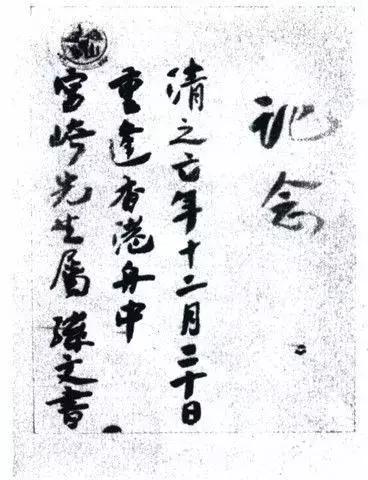 記念
清之亡年十二月二十日
重逢香港舟中
宮崎先生属 孫文書